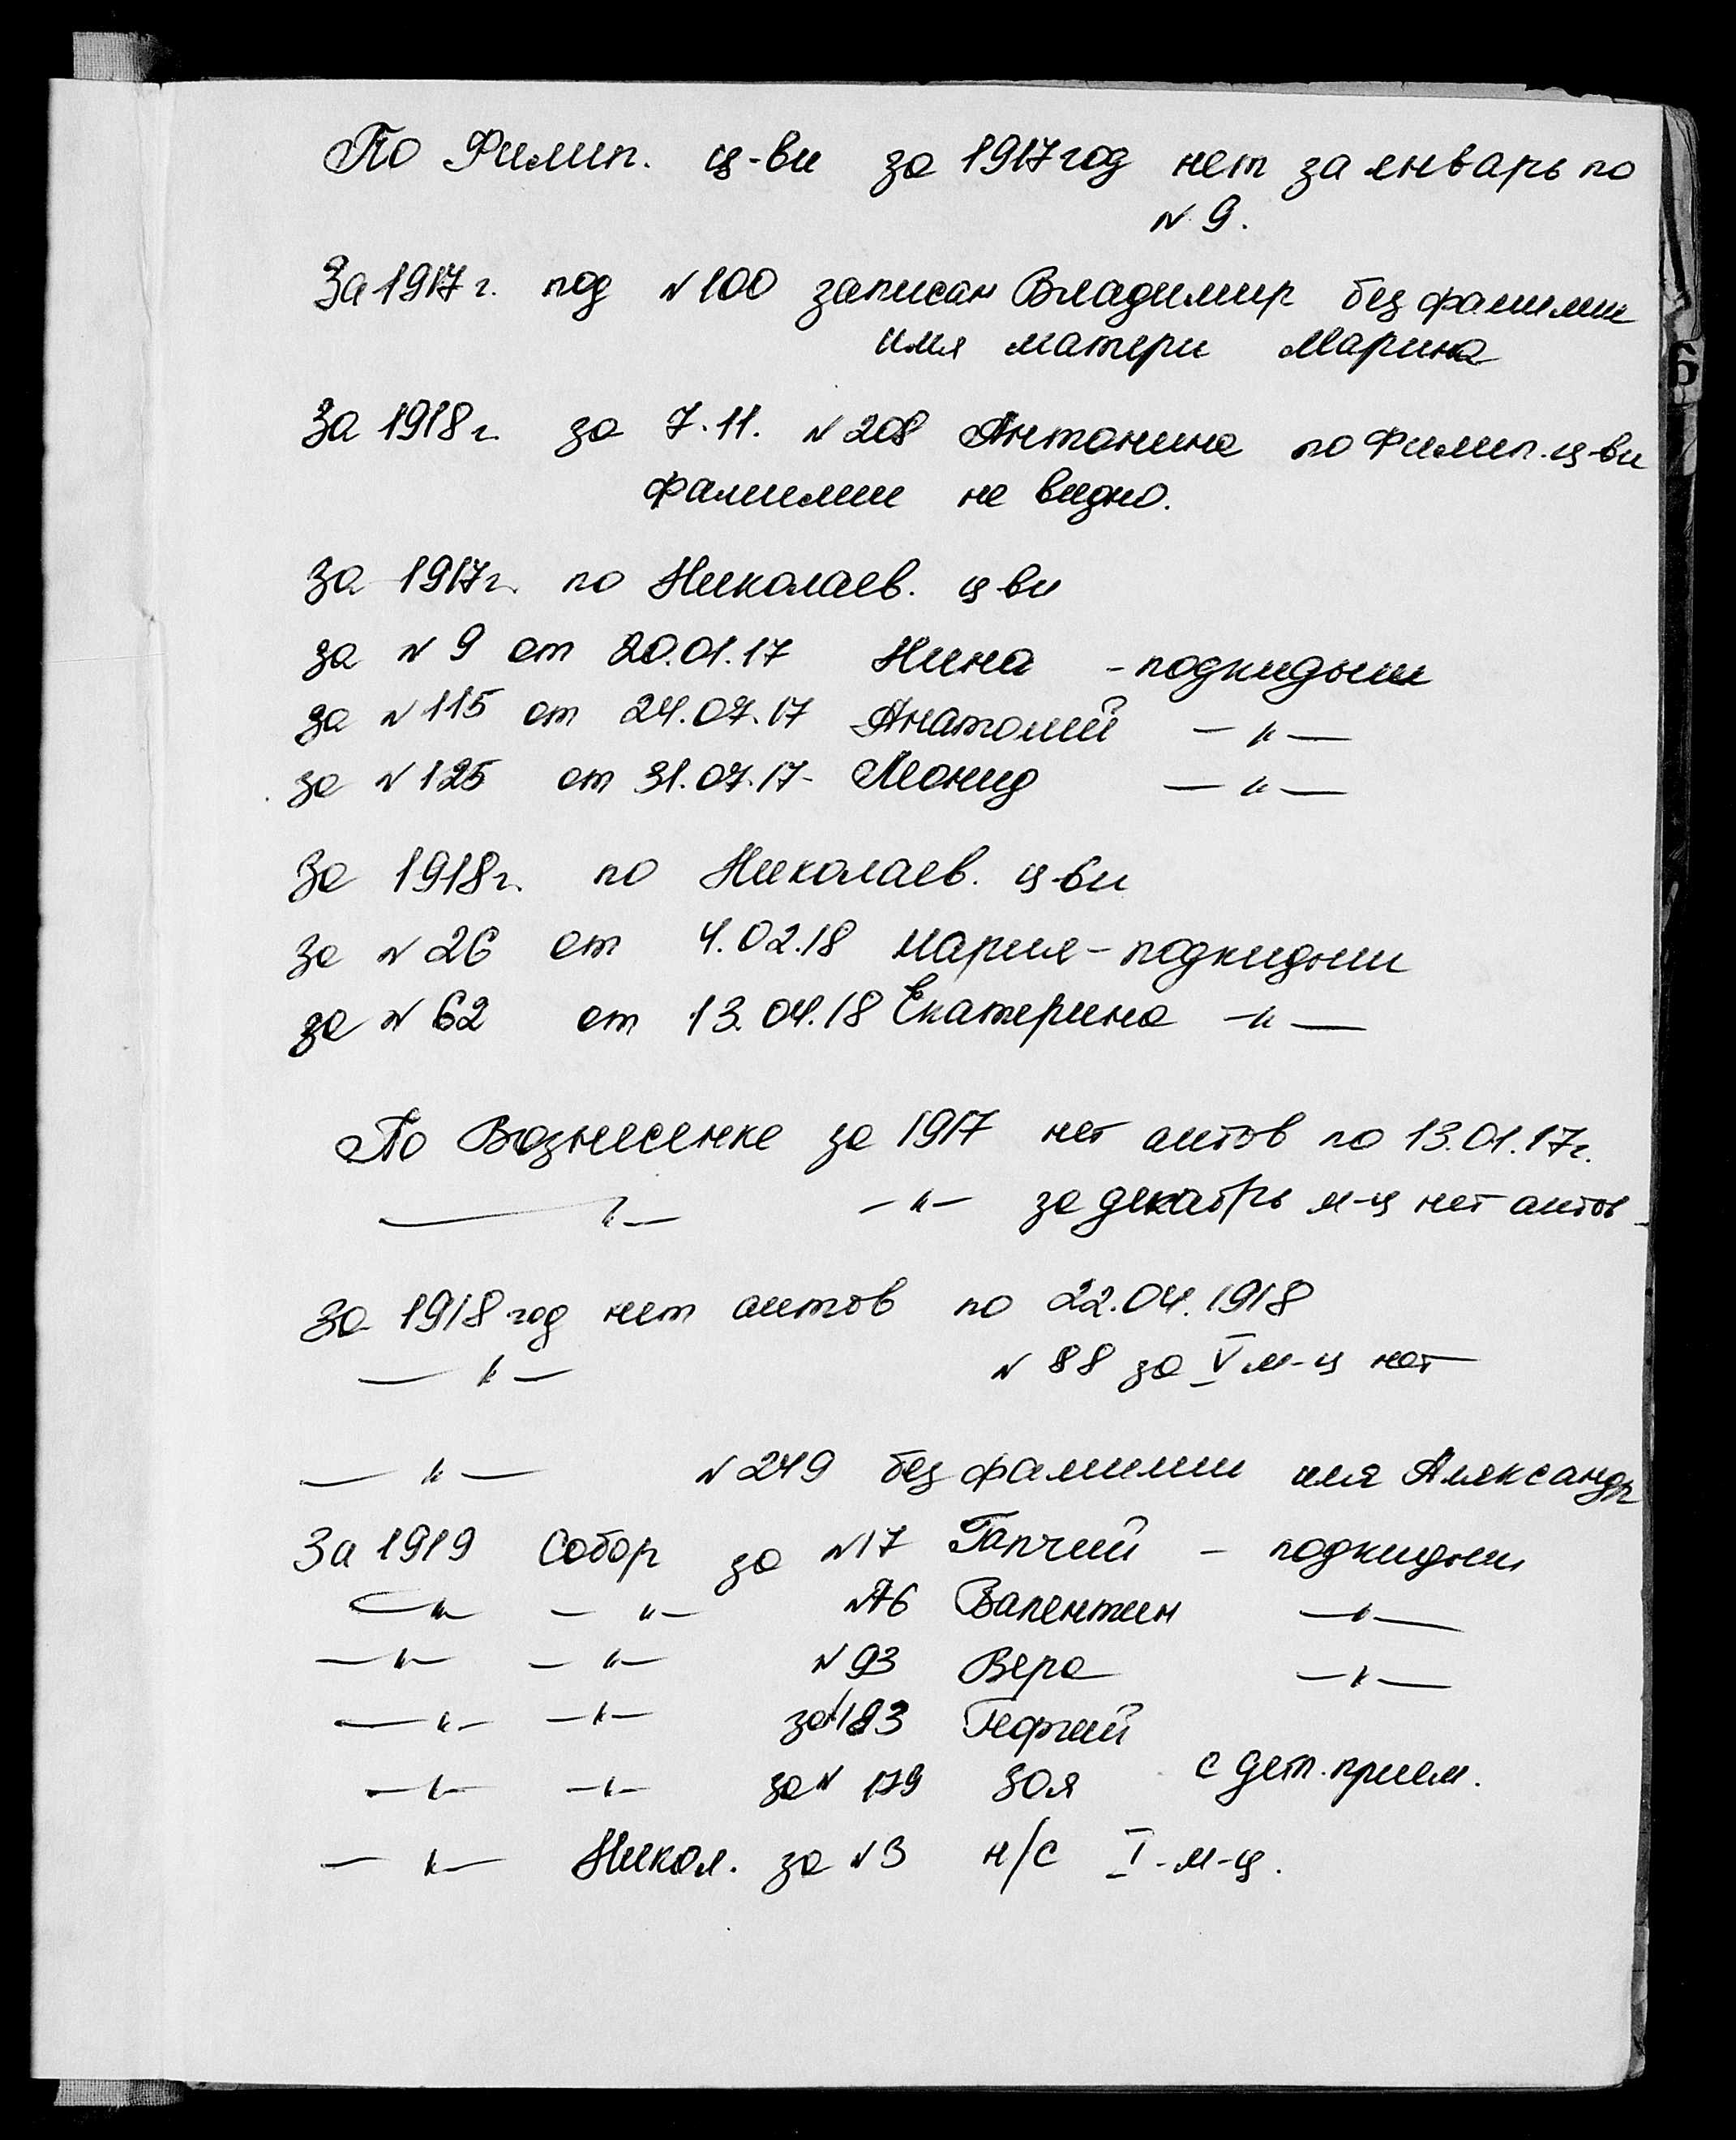 По Филип. ц-ви за 1917 год нет за январь по
N 9.
За 1917 г. под N 100 записан Владимир без фамилии
имя матери Марина
За 1918 г. за 7.11. N 208 Антонина по Филип. ц-ви
фамилии не видно.
За 1917 г. по Николаев. ц-ви
за N 9 от 20.01.17 Нина - подкидыш
за N 115 от 24.07.17 Анатолий — " —
за N 125 от 31.07.17 - Леонид — " —
За 1918 г. по Николаев. ц-ви
За N 26 от 4.02.18 Мария - подкидыш
за N 62 от 13.04.18 Екатерина — " —
По Вознесенке за 1917 нет актов по 13.01.17 г.
— " — — " — за декабрь м-ц нет актов
За 1918 год нет актов по 22.04.1918
— " — N 88 за V м-ц нет
— " — N 249 без фамилии имя Александр
За 1919 Собор за N 17 - подкидыш
— " — — " — N 76 Валентин — " —
— " — — " — N 93 Вера — " —
— " — — " — за N 183 Георгий
— " — — " — за N 179 Зоя с дет. прием.
— " — Никол. за N 3 н/с I - м-ц.
6